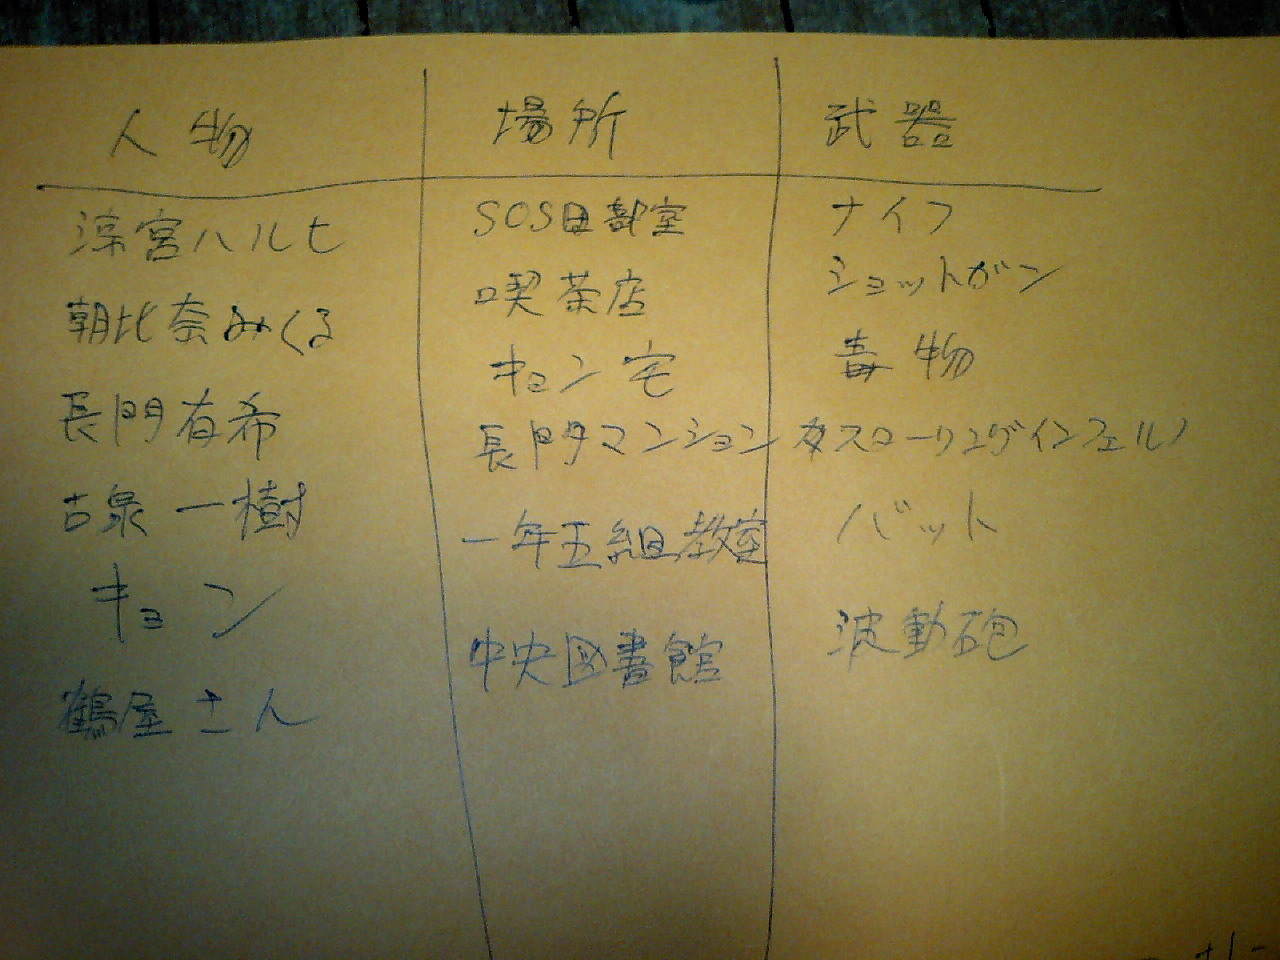 人物 場所 武器
涼宮ハルヒ SOS団部室 ナイフ
朝比奈みくる 喫茶店 ショットガン
長門有希 キョン宅 毒物
古泉一樹 長門マンション スローリングインフェルノ
キョン 一年五組教室 バット
鶴屋さん 中央図書館 波動砲